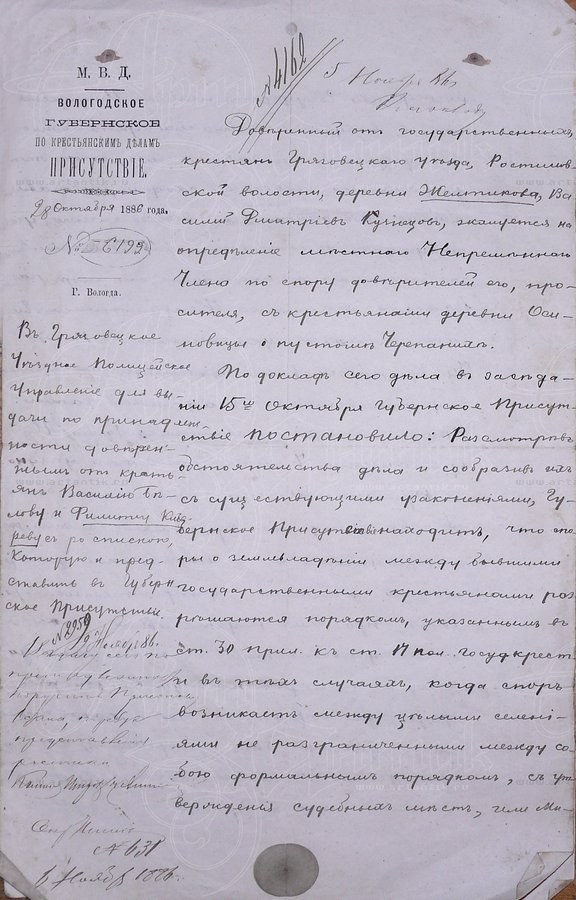 М. В. Д.
ВОЛОГОДСКОЕ
ГУБЕРНСКОЕ
ПО КРЕСТЬЯНСКИМ ДѢЛАМЪ
ПРИСУТСТВІЕ.
28 Октября 1886 года.
№ 6192
Г. Вологда.
Въ Грязовецкое
Уѣздное Полицейское
Управленіе для вы-
дачи по принадлеж-
ности довѣрен-
нымъ отъ кресть-
янъ Василію Бѣ-
лову и Филиппу
съ роспискою,
которую и пред-
ставить въ Губерн
ское Присутствіе.
№ 2959
№ 631
6 Ноября 1886 г.
№ 4162
5 Ноября
Довѣренный отъ государственныхъ
крестьянъ Грязовецкаго уѣзда, Ростилов-
ской волости, деревни Желтикова, Ва-
силій Дмитріевъ Кузнецовъ, жалуется на
опредѣленіе мѣстнаго Непремѣннаго
Члена по спору довѣрителей его, про-
сителя, съ крестьянами деревни Оси-
новицы о пустоши Черепанихѣ.
По докладѣ сего дѣла въ засѣда-
ніи 15го Октября Губернское Присут-
ствіе постановило: Разсмотрѣвъ
обстоятельства дѣла и сообразивъ ихъ
съ существующими узаконеніями, Гу-
бернское Присутствіе находитъ, что спо-
ры о землевладѣніи между бывшими
государственными крестьянами раз
рѣшаются порядкомъ, указаннымъ въ
ст. 30 прил. къ ст. 17 пол. госуд. крест
и въ тѣхъ случаяхъ, когда споръ
возникаетъ между цѣлыми селені-
ями не разграниченными между со-
бою формальнымъ порядкомъ, съ ут
вержденія судебныхъ мѣстъ, или Ми-